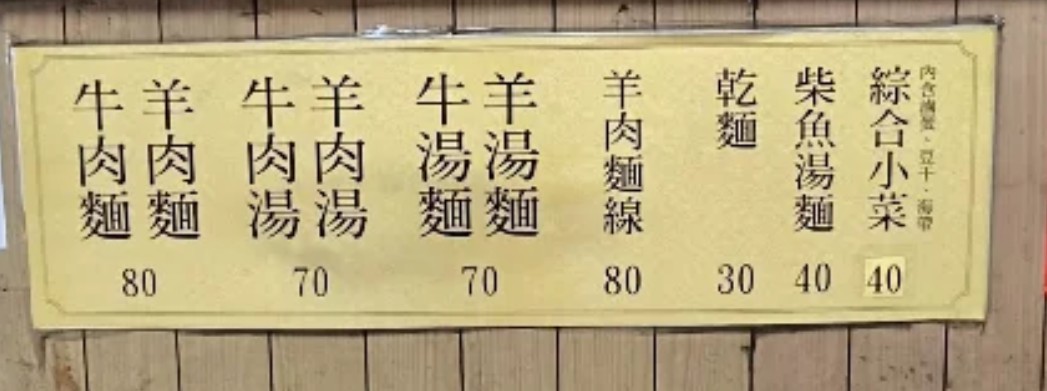 內含滷蛋、豆干、海帶
綜合小菜
40
柴魚湯麵
40
乾麵
30
羊肉麵線
80
羊湯麵
牛湯麵
70
羊肉湯
牛肉湯
70
羊肉麵
牛肉麵
80